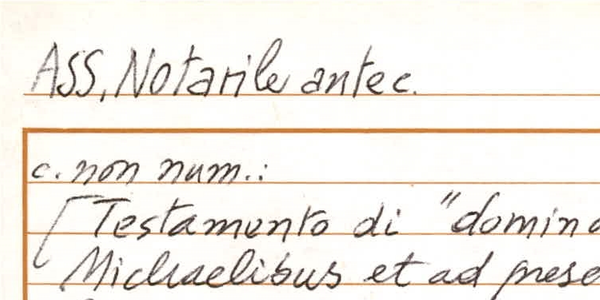 ASS, Notarile antec.
c. non num.:
[Testamento di "domina
Michaelibus et ad prese